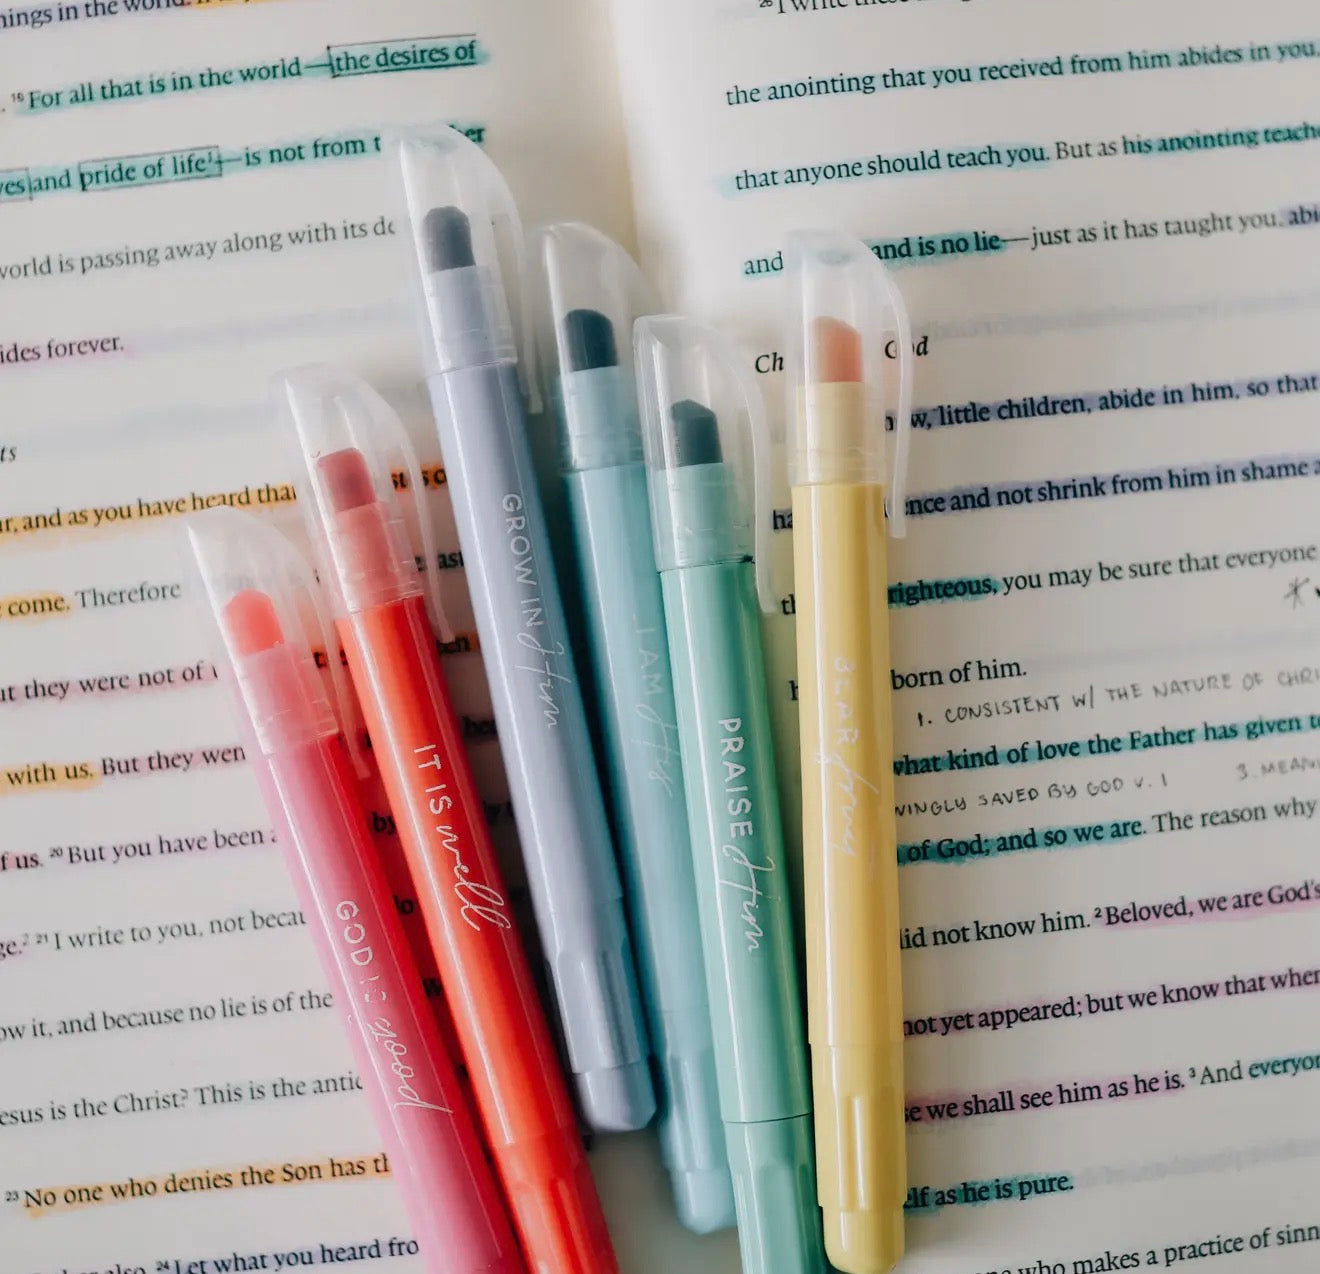 ings in the world.
16 For all that is in the world—the desires of
yes and pride of life1—is not from t er
world is passing away along with its de
ides forever.
ts
r, and as you have heard that
come. Therefore
ut they were not of
with us. But they wen
f us. 20 But you have been
ge.2 21 I write to you, not becau
ow it, and because no lie is of the
esus is the Christ? This is the antic
23 No one who denies the Son has th
also. 24 Let what you heard fro
26 I write
the anointing that you received from him abides in you,
that anyone should teach you. But as his anointing teache
and and is no lie—just as it has taught you, abi
Ch God
now, little children, abide in him, so that
ha ence and not shrink from him in shame a
righteous, you may be sure that everyone
born of him.
1. CONSISTENT W/ THE NATURE OF CHRI
what kind of love the Father has given to
VINGLY SAVED BY GOD V. 1 3. MEAN
of God; and so we are. The reason why
did not know him. 2 Beloved, we are God's
not yet appeared; but we know that when
se we shall see him as he is. 3 And everyon
elf as he is pure.
who makes a practice of sinn
GOD IS good
IT IS well
GROW IN Him
I AM His
PRAISE Him
BEAR fruit